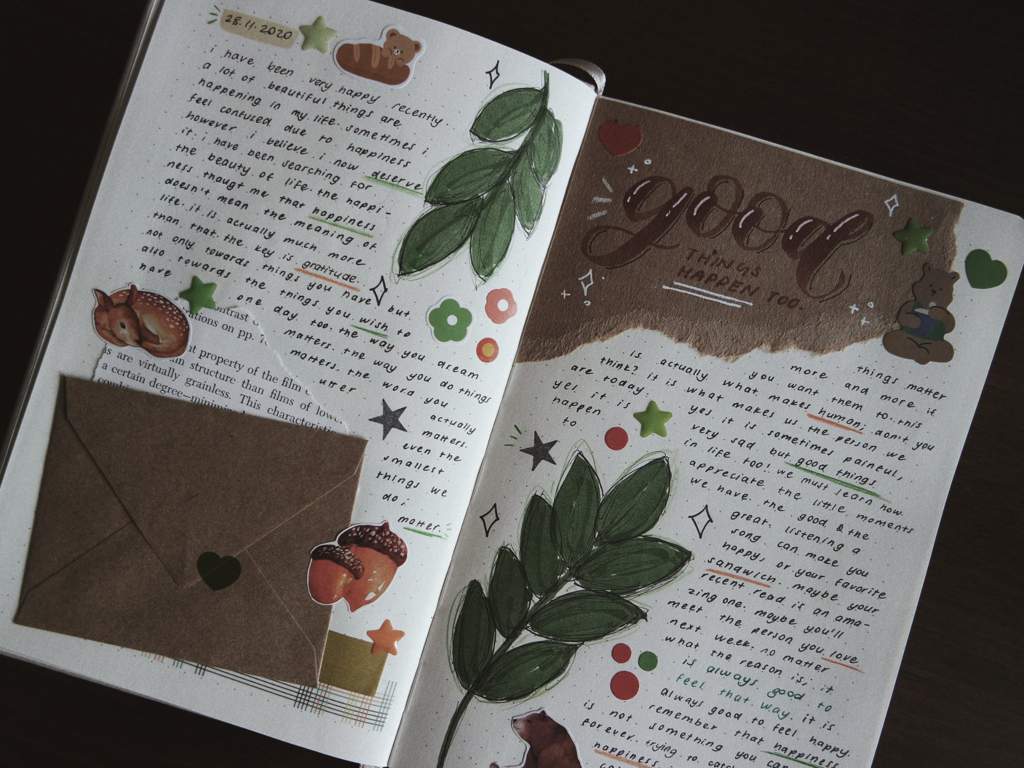 28.11.2020
i have been very happy recently.
a lot of beautiful things are
happening in my life. sometimes i
feel confused due to happiness
however i believe i now deserve
it. i have been searching for
the beauty of life. the happi-
ness thaugt me that happiness
doesn't mean the meaning of
life. it is actually much more
than that. the key is gratitude.
not only towards things you have but
also towards the things you wish to
have one day, too. the way you dream
matters. the way you do things
matters. the word you
utter actually
matters.
even the
smallest
things we
do;
matter.
contrast
ations on pp. 7
t property of the film
m structure than films of lowe
as are virtually grainless. This characteristi
a certain degree—minimiz
good
THINGS
HAPPEN TOO.
things matter
more and more if
you want them to. this
is actually what makes human; don't you
think? is is what makes us the person we
are today. yes it is sometimes painful,
yet it is very sad but good things
happen in life too! we must learn how
to appreciate the little moments
we have. the good & the
great. listening a
song can make you
happy, or your favorite
sandwich. maybe your
recent read is an ama-
zing one. maybe you'll
meet the person you love
next week. no matter
what the reason is; it
is always good to
feel that way. it is
always good to feel happy.
remember that happiness
is not something you can
forever. trying to catch
happiness